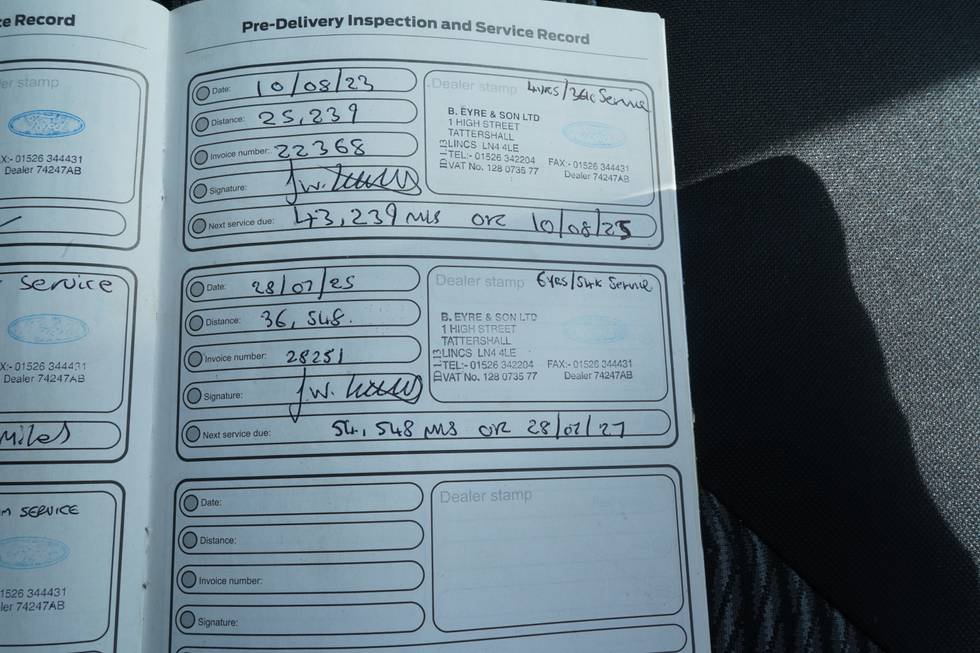 ce Record
er stamp
Ford
X:- 01526 344431
Dealer 74247AB
Service
X:- 01526 344431
Dealer 74247AB
Miles
M SERVICE
1526 344431
ler 74247AB
Pre-Delivery Inspection and Service Record
Date: 10/08/23
Distance: 25,239
Invoice number: 22368
Signature:
Next service due: 43,239 MLS OR 10/08/25
Dealer stamp 4YRS/36K Service
B. EYRE & SON LTD
1 HIGH STREET
TATTERSHALL
LINCS LN4 4LE
TEL:- 01526 342204 FAX:- 01526 344431
VAT No. 128 0735 77 Dealer 74247AB
Date: 28/07/25
Distance: 36,548.
Invoice number: 28251
Signature:
Next service due: 54,548 MLS OR 28/07/27
Dealer stamp 6YRS/54K Service
B. EYRE & SON LTD
1 HIGH STREET
TATTERSHALL
LINCS LN4 4LE
TEL:- 01526 342204 FAX:- 01526 344431
VAT No. 128 0735 77 Dealer 74247AB
Date:
Distance:
Invoice number:
Signature:
Dealer stamp